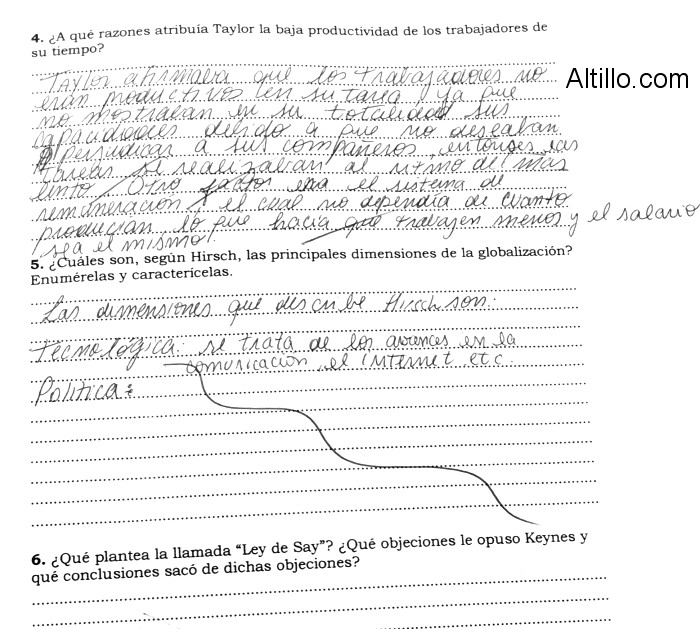 4. ¿A qué razones atribuía Taylor la baja productividad de los trabajadores de
su tiempo?
Altillo.com
Taylor afirmaba que los trabajadores no
eran productivos en su tarea, ya que
no mostraban en su totalidad sus
capacidades debido a que no deseaban
perjudicar a sus compañeros, entonses las
tareas se realizaban al ritmo del más
lento. Otro factor era el sistema de
remuneración, el cual no dependia de cuanto
producian, lo que hacia que trabajen menos y el salario
sea el mismo.
5. ¿Cuáles son, según Hirsch, las principales dimensiones de la globalización?
Enumérelas y caracterícelas.
Las dimensiones que describe Hirsch son:
Tecnológica: se trata de los avances en la
comunicación, el internet etc.
Política:
6. ¿Qué plantea la llamada “Ley de Say”? ¿Qué objeciones le opuso Keynes y
qué conclusiones sacó de dichas objeciones?